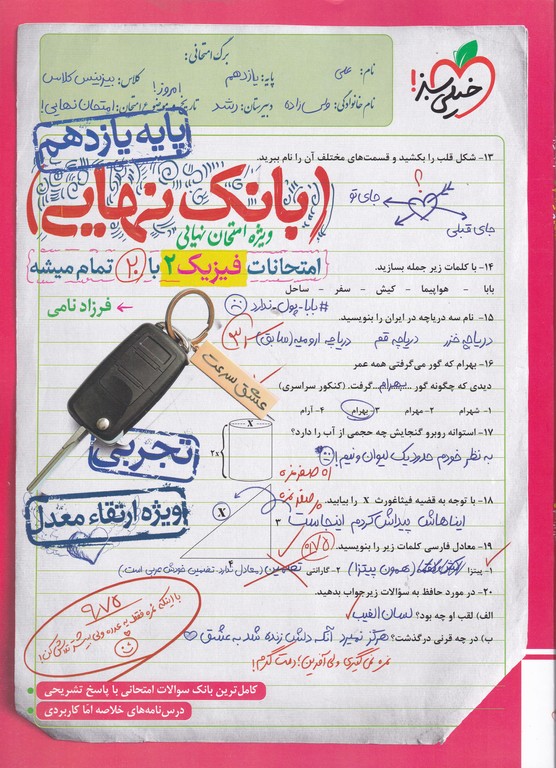 برگ امتحانی:
نام: علی
پایه: یازدهم
کلاس: بیزینس کلاس
نام خانوادگی: ولس زاده
دبیرستان: رشد
امروز!
تاریخ و موضوع امتحان: امتحان نهایی!
خیلی سبز!
پایه یازدهم
(بانک نهایی)
ویژه امتحان نهایی
امتحانات فیزیک ۲ با ۲۰ تمام میشه
فرزاد نامی
عشق سرعت
تجربی
ویژه ارتقاء معدل
۱۳- شکل قلب را بکشید و قسمت‌های مختلف آن را نام ببرید.
؟
جای تو
جای قبلی
۱۴- با کلمات زیر جمله بسازید.
بابا - هواپیما - کیش - سفر - ساحل
#بابا-پول-ندارد
۱۵- نام سه دریاچه در ایران را بنویسید.
دریاچه خزر دریاچه قم دریاچه ارومیه (سابق)
۱۶- بهرام که گور می‌گرفتی همه عمر
دیدی که چگونه گور ...بهرام... گرفت. (کنکور سراسری)
۱- شهرام ۲- مهرام ۳- بهرام ۴- آرام
۱۷- استوانه روبرو گنجایش چه حجمی از آب را دارد؟
به نظر خودم حدود یک لیوان و نیم!
x
2x
۱۸- با توجه به قضیه فیثاغورث X را بیابید.
ایناهاش پیداش کردم اینجاست
X
۳
۴
۱۹- معادل فارسی کلمات زیر را بنویسید.
۰/۷۵
۱- پیتزا (همون پیتزا) ۲- گارانتی تضمین (معادل ندارد. تضمین خودش عربی است.)
۲۰- در مورد حافظ به سؤالات زیر جواب بدهید.
الف) لقب او چه بود؟ لسان الغیب
ب) در چه قرنی درگذشت؟ هرگز نمیرد آنکه دلش زنده شد به عشق
نمره نمی‌گیری ولی آفرین! دمت گرم!
۹/۷۵
کامل‌ترین بانک سوالات امتحانی با پاسخ تشریحی
درس‌نامه‌های خلاصه اما کاربردی